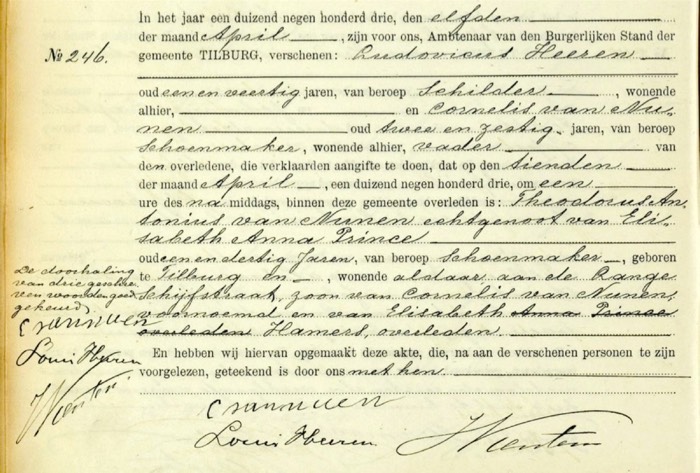 In het jaar een duizend negen honderd drie, den elfden
der maand April, zijn voor ons, Ambtenaar van den Burgerlijken Stand der
№ 246.
gemeente TILBURG, verschenen: Ludovicus Heeren
oud een en veertig jaren, van beroep Schilder, wonende
alhier, en Cornelis van Nu-
nen oud twee en zestig jaren, van beroep
Schoenmaker, wonende alhier, vader van
den overledene, die verklaarden aangifte te doen, dat op den tienden
der maand April, een duizend negen honderd drie, om een
ure des na middags, binnen deze gemeente overleden is: Theodorus An-
tonius van Nunen echtgenoot van Eli-
sabeth Anna Prince
oud een en dertig Jaren, van beroep Schoenmaker, geboren
te Tilburg en, wonende aldaar aan de Lange
Schijfstraat, zoon van Cornelis van Nunen,
voornoemd en van Elisabeth Anna Prince
overleden Hamers, overleden.
De doorhaling
van drie geschre-
ven woorden goed
gekeurd.
C v nunen
Louis Heeren
En hebben wij hiervan opgemaakt deze akte, die, na aan de verschenen personen te zijn
voorgelezen, geteekend is door ons met hen.
C v nunen
Louis Heeren